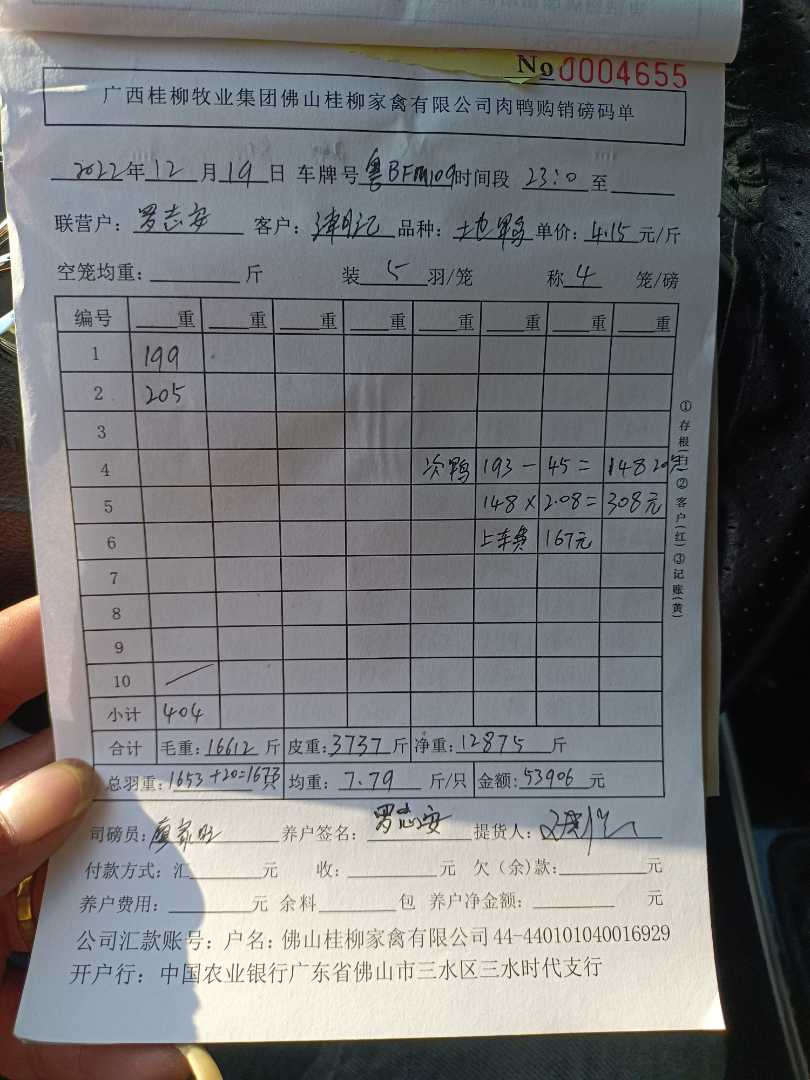 No 0004655
广西桂柳牧业集团佛山桂柳家禽有限公司肉鸭购销磅码单
2022年12月19日 车牌号粤BFM109时间段 23:0 至
联营户：罗志安 客户： 品种： 单价：4.15元/斤
空笼均重： 斤 装 5 羽/笼 称 4 笼/磅
编号 重 重 重 重 重 重 重 重
1 199
2 205
3
4 次鸭 193 - 45 = 148
5 148 × 2.08 = 308元
6 上车费 167元
7
8
9
10
小计 404
合计 毛重：16612斤 皮重：3737斤 净重：12875斤
总羽重：1653+20=1673只 均重：7.79 斤/只 金额：53906元
司磅员： 养户签名：罗志安 提货人：
付款方式：汇 元 收： 元 欠（余）款： 元
养户费用： 元 余料 包 养户净金额： 元
公司汇款账号：户名：佛山桂柳家禽有限公司44-440101040016929
开户行：中国农业银行广东省佛山市三水区三水时代支行
①存根(白)②客户(红)③记账(黄)